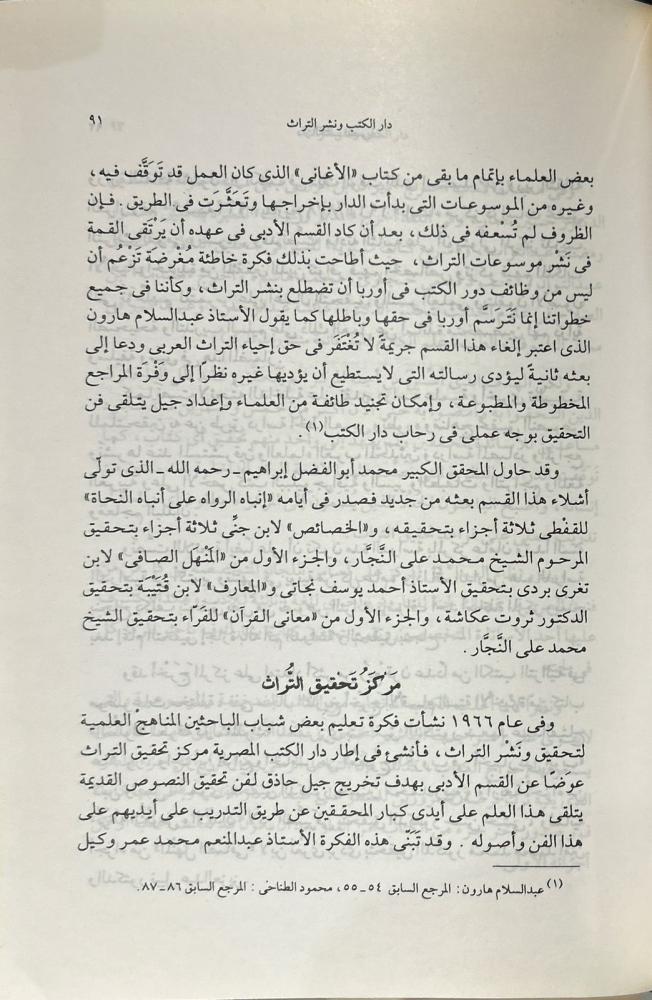 دار الكتب ونشر التراث ٩١
بعض العلماء بإتمام ما بقى من كتاب «الأغانى» الذى كان العمل قد تَوَقَّف فيه،
وغيره من الموسوعات التى بدأت الدار بإخراجها وتَعَثَّرَت فى الطريق. فإن
الظروف لم تُسْعفه فى ذلك، بعد أن كاد القسم الأدبى فى عهده أن يَرْتَقى القمة
فى نَشْر موسوعات التراث، حيث أطاحت بذلك فكرة خاطئة مُغْرضَة تَزْعُم أن
ليس من وظائف دور الكتب فى أوربا أن تضطلع بنشر التراث، وكأننا فى جميع
خطواتنا إنما نَتَرَسَّم أوربا فى حقها وباطلها كما يقول الأستاذ عبدالسلام هارون
الذى اعتبر إلغاء هذا القسم جريمةً لا تُغْتَفَر فى حق إحياء التراث العربى ودعا إلى
بعثه ثانيةً ليؤدى رسالته التى لايستطيع أن يؤديها غيره نظرًا إلى وَفْرَة المراجع
المخطوطة والمطبوعة، وإمكان تجنيد طائفة من العلماء وإعداد جيل يتلقى فن
التحقيق بوجه عملى فى رحاب دار الكتب(١).
وقد حاول المحقق الكبير محمد أبوالفضل إبراهيم ـ رحمه الله ـ الذى تولّى
أشلاء هذا القسم بعثه من جديد فصدر فى أيامه «إنباه الرواه على أنباه النحاة»
للقفْطى ثلاثة أجزاء بتحقيقه، و«الخصائص» لابن جنِّى ثلاثة أجزاء بتحقيق
المرحوم الشيخ محمد على النَّجَّار، والجزء الأول من «المَنْهَل الصافى» لابن
تغرى بردى بتحقيق الأستاذ أحمد يوسف نجاتى و«المعارف» لابن قُتَيْبَة بتحقيق
الدكتور ثروت عكاشة، والجزء الأول من «معانى القرآن» للفَرّاء بتحقيق الشيخ
محمد على النَّجَّار.
مَركَزُ تَحْقيق التُّراث
وفى عام ١٩٦٦ نشأت فكرة تعليم بعض شباب الباحثين المناهجْ العلمية
لتحقيق ونَشْر التراث، فأنشئ فى إطار دار الكتب المصرية مركز تحقيق التراث
عوَضًا عن القسم الأدبى بهدف تخريج جيل حاذق لفن تحقيق النصوص القديمة
يتلقى هذا العلم على أيدى كبار المحققين عن طريق التدريب على أيديهم على
هذا الفن وأصوله. وقد تَبَنَّى هذه الفكرة الأستاذ عبدالمنعم محمد عمر وكيل
(١) عبدالسلام هارون: المرجع السابق ٥٤ـ٥٥، محمود الطناحى: المرجع السابق ٨٦ـ٨٧.